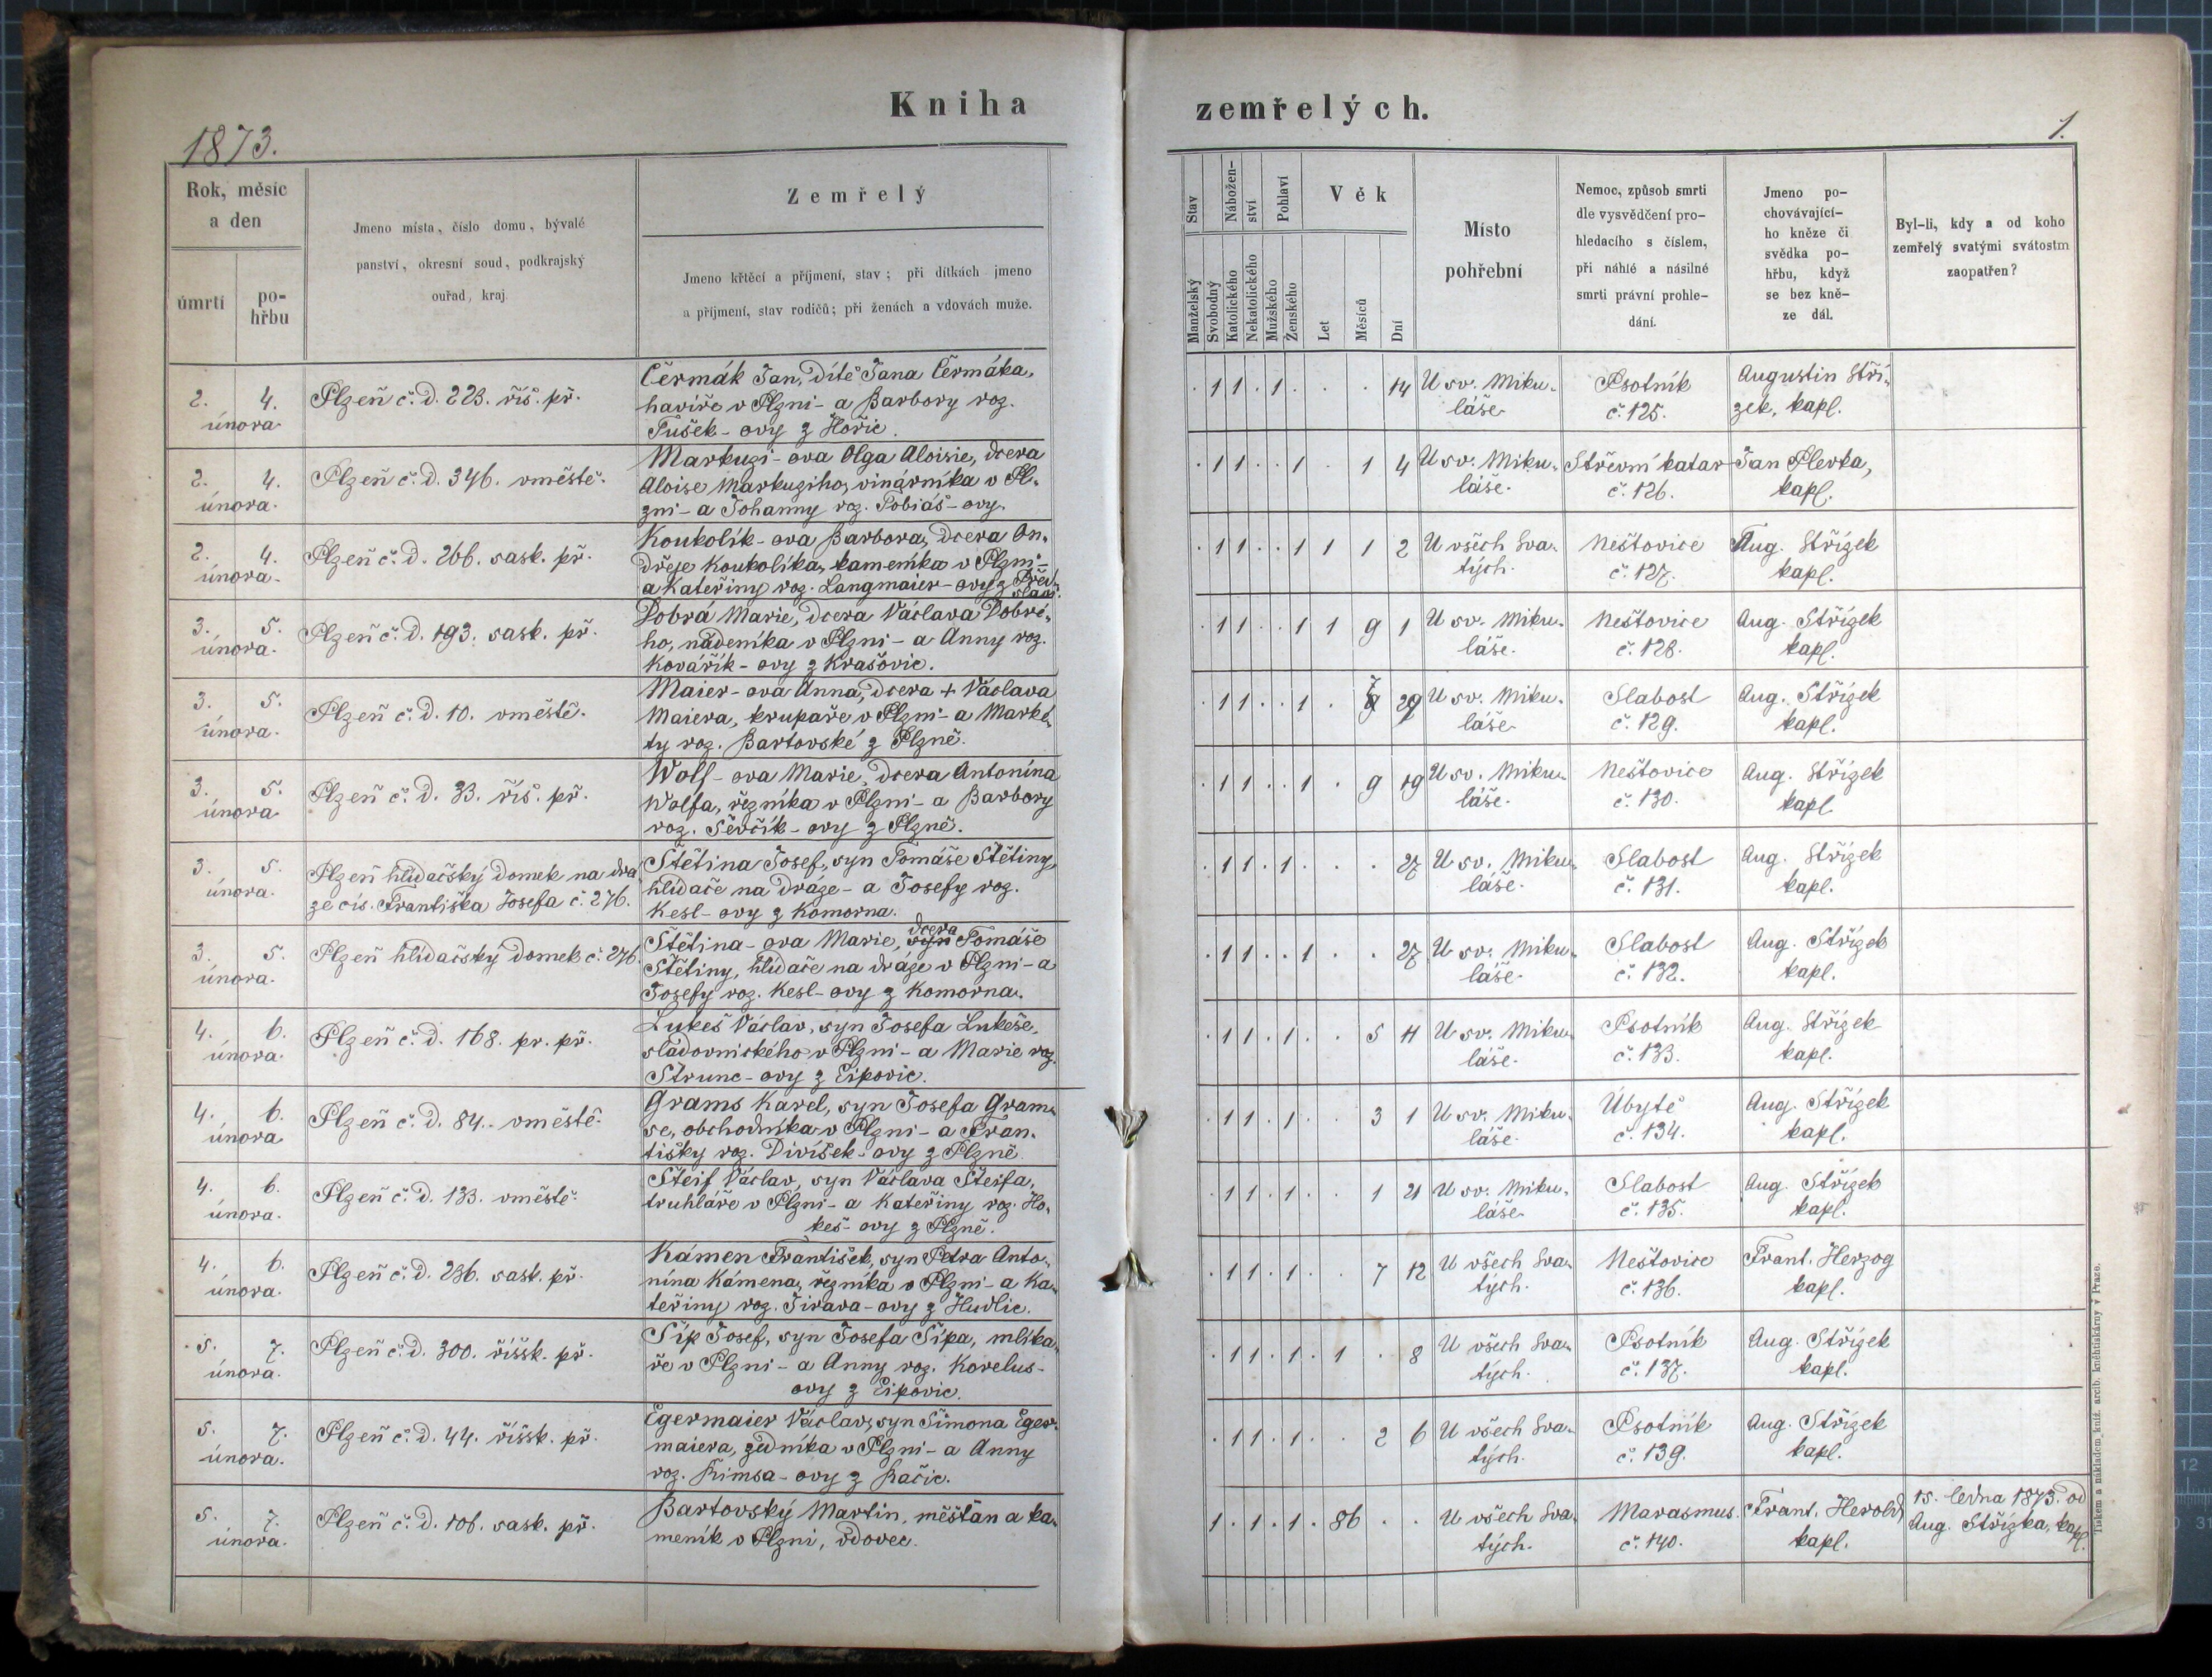 Kniha zemřelých.
1873.
1.
Rok, měsíc
a den
úmrtí
po-
hřbu
Jmeno místa, číslo domu, bývalé
panství, okresní soud, podkrajský
ouřad, kraj
Zemřelý
Jmeno křtěcí a příjmení, stav; při dítkách jmeno
a příjmení, stav rodičů; při ženách a vdovách muže.
Stav
Manželský
Svobodný
Nábožen-
ství
Katolického
Nekatolického
Pohlaví
Mužského
Ženského
Věk
Let
Měsíců
Dní
Místo
pohřební
Nemoc, způsob smrti
dle vysvědčení pro-
hledacího s číslem,
při náhlé a násilné
smrti právní prohle-
dání.
Jmeno po-
chovávající-
ho kněze či
svědka po-
hřbu, když
se bez kně-
ze dál.
Byl-li, kdy a od koho
zemřelý svatými svátostm
zaopatřen?
2. 4.
února
Plzeň č. d. 223. říš. př.
Čermák Jan, dítě Jana Čermáka,
havíře v Plzni - a Barbory roz.
Tušek-ovy z Hořic.
. 1 1 . 1 . . . 14
U sv. Miku-
láše.
Psotník
č. 125.
Augustin Stří-
zek, kapl.
2. 4.
února.
Plzeň č. d. 346. v městě.
Markuzi-ova Olga Aloisie, dcera
Aloise Markuziho, vinárníka v Pl-
zni - a Johanny roz. Tobiáš-ovy.
. 1 1 . . 1 . 1 4
U sv. Miku-
láše.
Střevní katar
č. 126.
Jan Plevka,
kapl.
2. 4.
února.
Plzeň č. d. 266. sask. př.
Koukolík-ova Barbora, dcera On-
dřeje Koukolíka, kameníka v Plzni -
a Kateřiny roz. Langmaier-ovy z Před-
slav.
. 1 1 . . 1 1 1 2
U všech Sva-
tých.
Neštovice
č. 127.
Aug. Střízek
kapl.
3. 5.
února.
Plzeň č. d. 193. sask. př.
Dobrá Marie, dcera Václava Dobré-
ho, nádeníka v Plzni - a Anny roz.
Kovářík-ovy z Krašovic.
. 1 1 . . 1 1 9 1
U sv. Miku-
láše.
Neštovice
č. 128.
Aug. Střízek
kapl.
3. 5.
února.
Plzeň č. d. 10. v městě.
Maier-ova Anna, dcera + Václava
Maiera, krupaře v Plzni - a Marké-
ty roz. Bartovské z Plzně.
. 1 1 . . 1 . 7 29
U sv. Miku-
láše.
Slabost
č. 129.
Aug. Střízek
kapl.
3. 5.
února
Plzeň č. d. 33. říš. př.
Wolf-ova Marie, dcera Antonína
Wolfa, řezníka v Plzni - a Barbory
roz. Ševčík-ovy z Plzně.
. 1 1 . . 1 . 9 19
U sv. Miku-
láše.
Neštovice
č. 130.
Aug. Střízek
kapl.
3. 5.
února.
Plzeň hlídačský domek na drá
ze cís. Františka Josefa č. 276.
Štětina Josef, syn Tomáše Štětiny,
hlídače na dráze - a Josefy roz.
Kesl-ovy z Komorna.
. 1 1 . 1 . . . 27
U sv. Miku-
láše.
Slabost
č. 131.
Aug. Střízek
kapl.
3. 5.
února.
Plzeň hlídačský domek č. 276.
dcera
Štětina-ova Marie, syn Tomáše
Štětiny, hlídače na dráze v Plzni - a
Josefy roz. Kesl-ovy z Komorna.
. 1 1 . . 1 . . 27
U sv. Miku-
láše.
Slabost
č. 132.
Aug. Střízek
kapl.
4. 6.
února.
Plzeň č. d. 168. pr. př.
Lukeš Václav, syn Josefa Lukeše,
sladovnického v Plzni - a Marie roz.
Strunc-ovy z Ejpovic.
. 1 1 . 1 . . 5 11
U sv. Miku-
láše.
Psotník
č. 133.
Aug. Střízek
kapl.
4. 6.
února
Plzeň č. d. 84. v městě.
Grams Karel, syn Josefa Gram-
se, obchodníka v Plzni - a Fran-
tišky roz. Divíšek-ovy z Plzně.
. 1 1 . 1 . . 3 1
U sv. Miku-
láše.
Úbytě
č. 134.
Aug. Střízek
kapl.
4. 6.
února.
Plzeň č. d. 133. v městě.
Šteif Václav, syn Václava Šteifa,
truhláře v Plzni - a Kateřiny roz. Ho-
keš-ovy z Plzně.
. 1 1 . 1 . . 1 21
U sv. Miku-
láše.
Slabost
č. 135.
Aug. Střízek
kapl.
4. 6.
února.
Plzeň č. d. 236. sask. př.
Kámen František, syn Petra Anto-
nína Kámena, řezníka v Plzni - a Ka-
teřiny roz. Jirava-ovy z Hudlic.
. 1 1 . 1 . . 7 12
U všech Sva-
tých.
Neštovice
č. 136.
Frant. Herzog
kapl.
5. 7.
února.
Plzeň č. d. 300. říšsk. př.
Šíp Josef, syn Josefa Šípa, mlíka-
ře v Plzni - a Anny roz. Korelus-
ovy z Ejpovic.
. 1 1 . 1 . 1 . 8
U všech Sva-
tých.
Psotník
č. 137.
Aug. Střízek
kapl.
5. 7.
února.
Plzeň č. d. 44. říšsk. př.
Egermaier Václav, syn Šimona Eger-
maiera, zedníka v Plzni - a Anny
roz. Řimsa-ovy z Račic.
. 1 1 . 1 . . 2 6
U všech Sva-
tých.
Psotník
č. 139.
Aug. Střízek
kapl.
5. 7.
února.
Plzeň č. d. 106. sask. př.
Bartovský Martin, měšťan a ka-
meník v Plzni, vdovec.
1 . 1 . 1 . 86 . .
U všech Sva-
tých.
Marasmus.
č. 140.
Frant. Herold
kapl.
15. ledna 1873. od
Aug. Střízka, kapl.
Tiskem a nákladem kníž. arcib. knéhtiskárny v Praze.